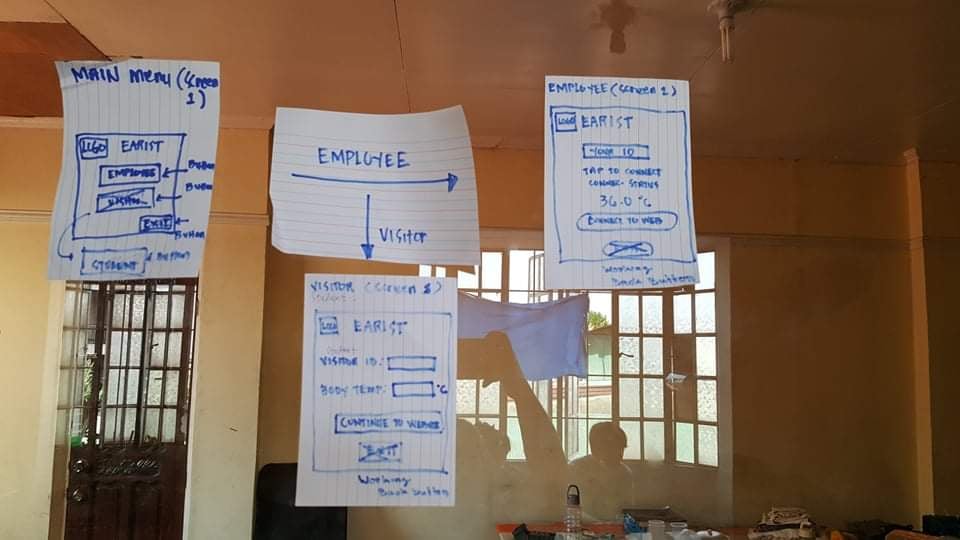 MAIN menu (Screen
1)
LOGO EARIST
EMPLOYEE
Button
Button
EXIT
Button
STUDENT
BUTTON
EMPLOYEE
VISITOR
EMPLOYEE (Screen 1)
LOGO EARIST
YOUR ID
TAP TO CONNECT
CONNEC- STATUS
36.0 °C
CONNECT TO WEB
Working
Back Button
VISITOR (Screen 1)
LOGO EARIST
VISITOR ID:
BODY TEMP: °C
CONTINUE TO
EXIT
Working
Back button